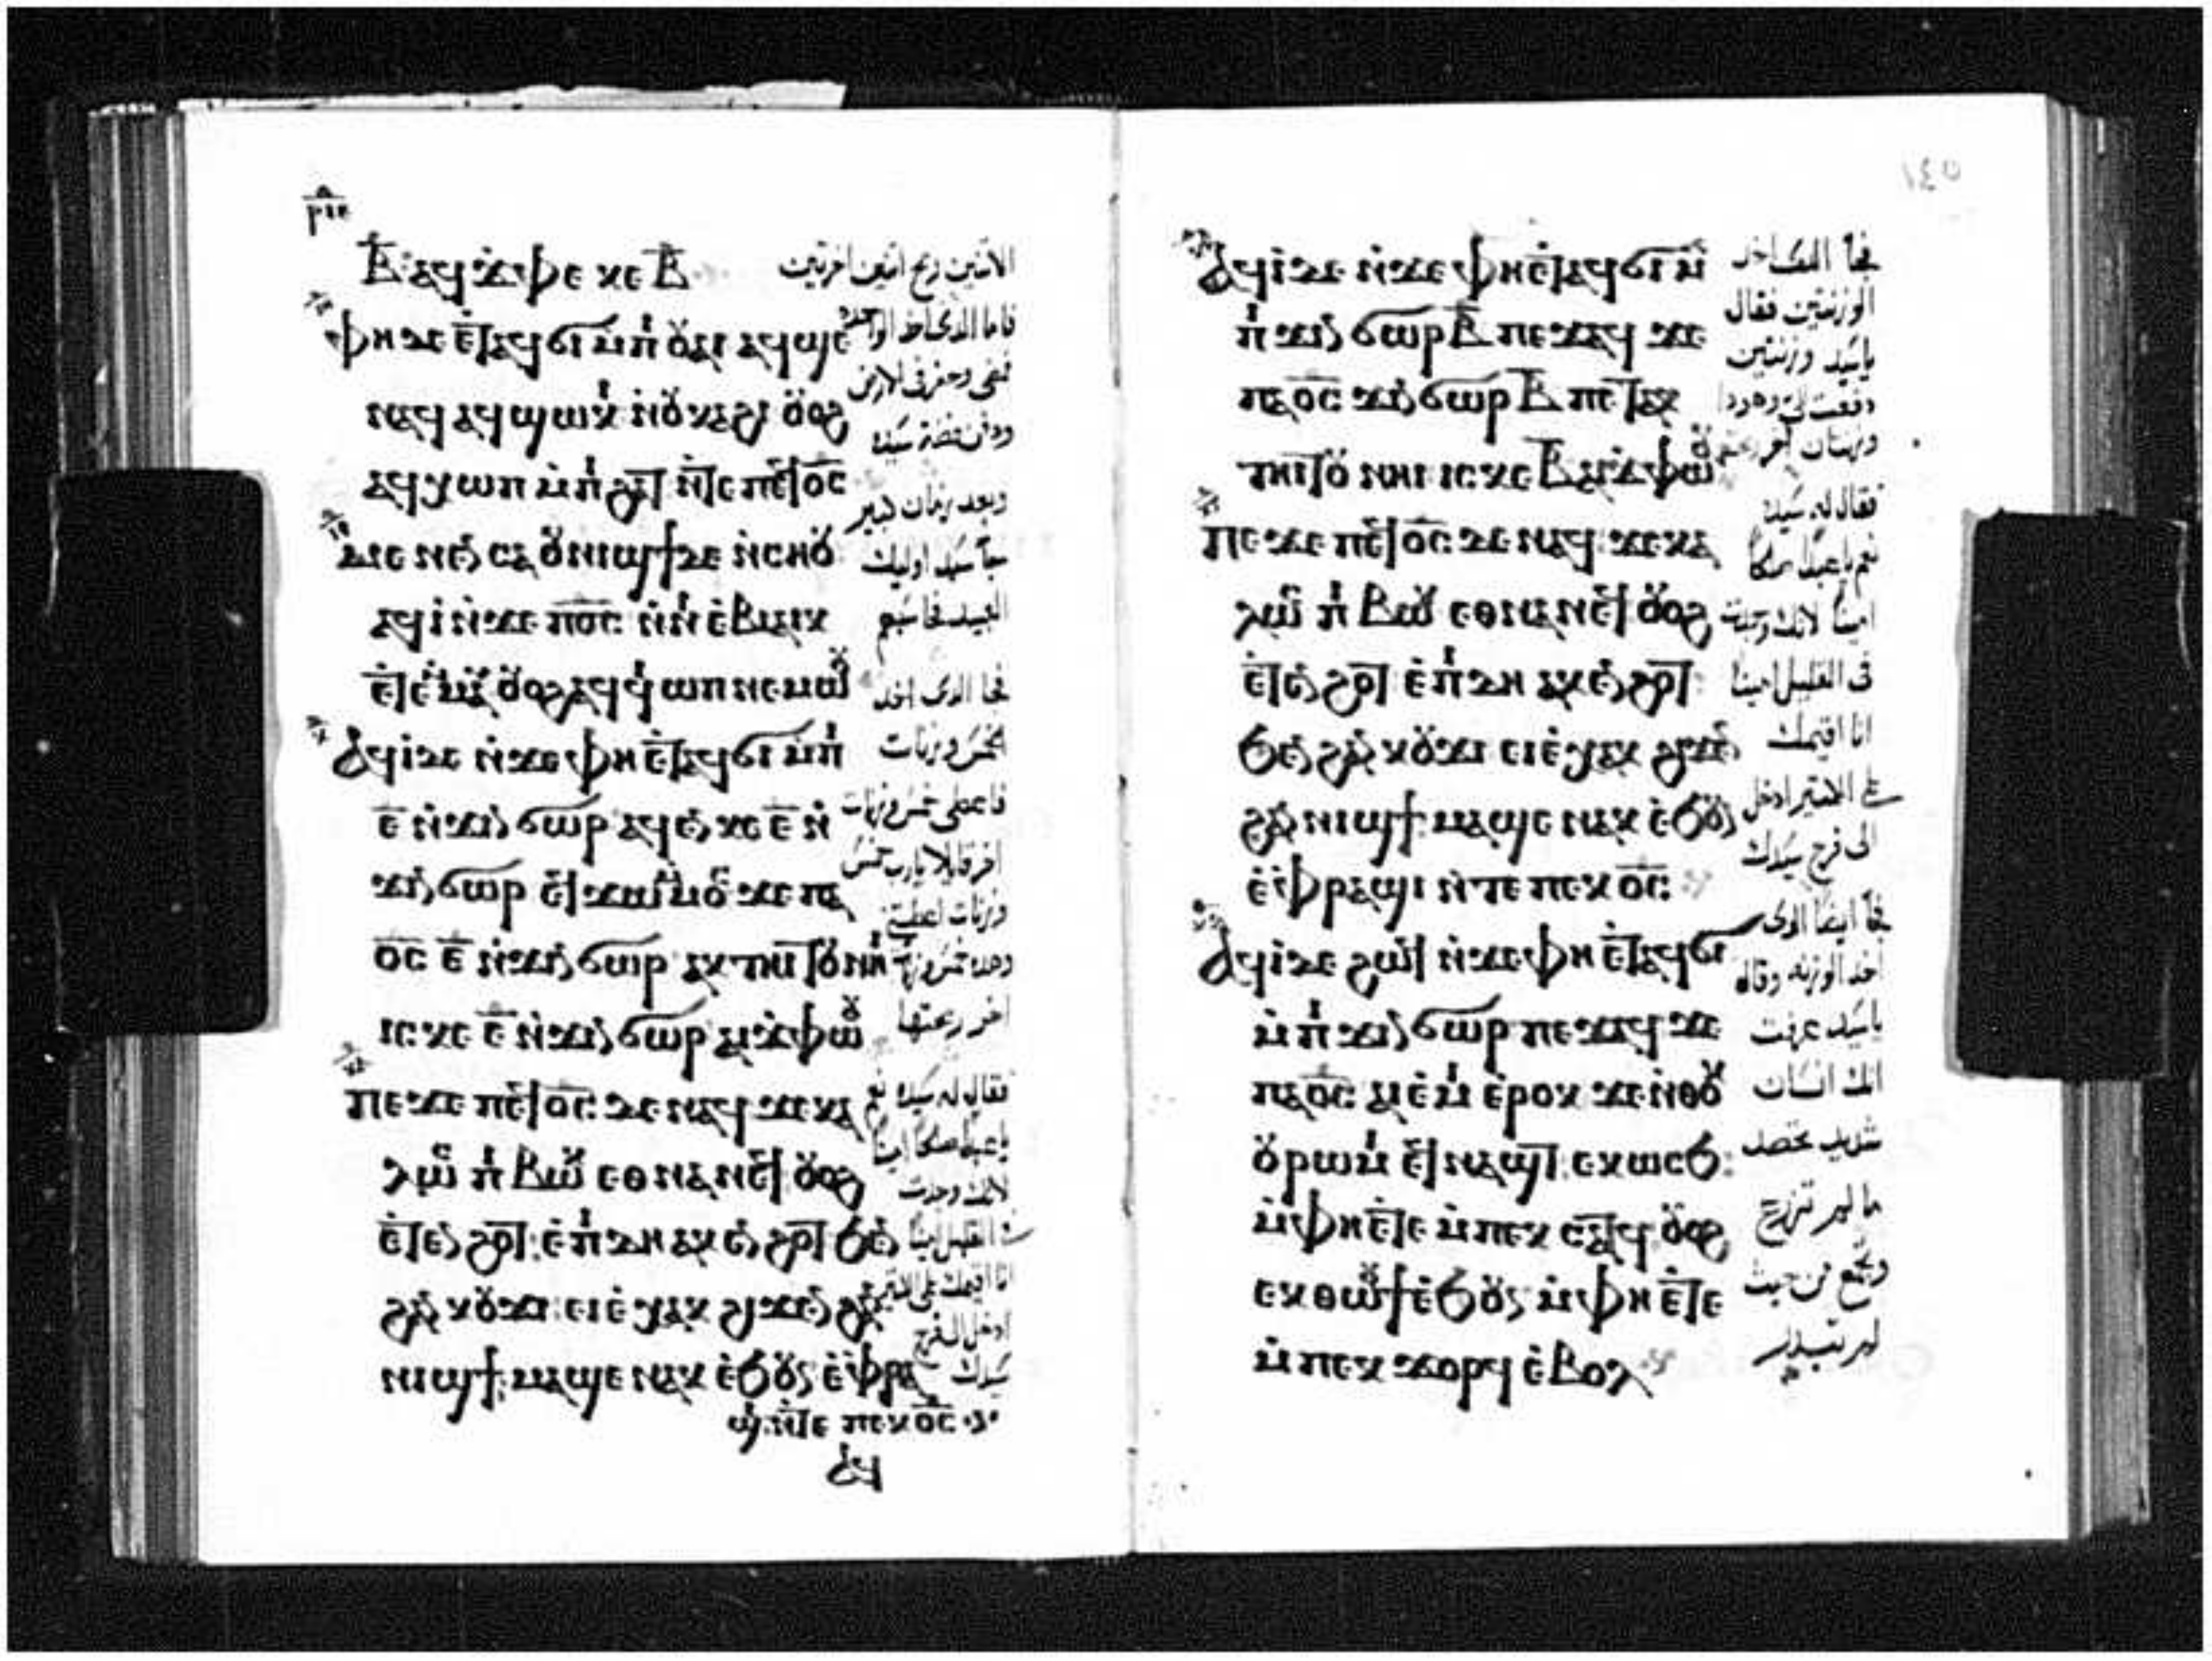 ⲣⲓⲉ
ⲃ̅ ⲁϥϫⲫⲉ ⲕⲉ ⲃ̅
ⲫⲏ ⲇⲉ ⲉⲧⲁϥϭⲓ ⲙⲡ ⲟⲩⲁⲓ ⲁϥϣⲉ
ⲛⲁϥ ⲁϥϣⲱⲕ ⲛⲟⲩⲕⲁϩⲓ ⲟⲩⲟϩ
ⲁϥⲭⲱⲡ ⲙⲡϩⲁⲧ ⲛⲧⲉ ⲡⲉϥⲟ̅ⲥ̅
ⲙⲉⲛⲉⲛⲥⲁ ⲟⲩⲛⲓϣϯ ⲇⲉ ⲛⲥⲏⲟⲩ
ⲁϥⲓ ⲛϫⲉ ⲡⲟ̅ⲥ̅ ⲛⲛⲉⲃⲓⲁⲓⲕ
ⲉⲧⲉⲙⲙⲁⲩ ⲟⲩⲟϩ ⲁϥϥⲓⲱⲡ ⲛⲉⲙⲱⲟⲩ
ⲁϥⲓ ⲇⲉ ⲛϫⲉ ⲫⲏ ⲉⲧⲁϥϭⲓ ⲙⲡ
ⲉ̅ ⲛϫⲓⲛϭⲱⲣ ⲁϥⲉⲛ ⲕⲉ ⲉ̅ ⲛ
ϫⲓⲛϭⲱⲣ ⲉϥϫⲱ ⲙⲙⲟⲥ ϫⲉ ⲡⲁ
ⲟ̅ⲥ̅ ⲉ̅ ⲛϫⲓⲛϭⲱⲣ ⲁⲕⲧⲏⲓⲧⲟⲩ ⲛⲏⲓ
ⲓⲥ ⲕⲉ ⲉ̅ ⲛϫⲓⲛϭⲱⲣ ⲁⲓϫⲫⲱⲟⲩ
ⲡⲉϫⲉ ⲡⲉϥⲟ̅ⲥ̅ ⲇⲉ ⲛⲁϥ ϫⲉ ⲕⲁ
ⲗⲱⲥ ⲡⲓⲃⲱⲕ ⲉⲑⲛⲁⲛⲉϥ ⲟⲩⲟϩ
ⲉⲧⲉⲛϩⲟⲧ ⲉⲡⲓⲇⲏ ⲁⲕⲉⲛϩⲟⲧ ϧⲉⲛ
ϩⲁⲛⲕⲟⲩϫⲓ ⲉⲓⲉⲭⲁⲕ ϩⲓϫⲉⲛ ϩⲁⲛ
ⲛⲓϣϯ ⲙⲁϣⲉ ⲛⲁⲕ ⲉϧⲟⲩⲛ ⲉⲫⲣⲁ
ϣⲓ ⲛⲧⲉ ⲡⲉⲕⲟ̅ⲥ̅
ⲁϥ
الاثنين ربح اثنين اخرتين
فاما الذى اخذ الواحده
فمضى وحفر فى الارض
ودفن فضة سيده
وبعد زمان كبير
جآ سيد اوليك
العبيد فحاسبهم
فجا الذى اخذ
الخمس وزنات
فاعطى خمس وزنات
اخر قايلا يارب خمس
وزنات اعطيتنى
وهذه خمس وزنات
اخر ربحتها
فقال له سيده نعم
ياعبدا صالحا امينا
لانك وجدت
فى القليل امينا
انا اقيمك على الكثير
ادخل الى فرح
سيدك
ⲁϥⲓ ⲇⲉ ⲛϫⲉ ⲫⲏ ⲉⲧⲁϥϭⲓ ⲙ
ⲡ ϫⲓⲛϭⲱⲣ ⲃ̅ ⲡⲉϫⲁϥ ϫⲉ
ⲡⲁⲟ̅ⲥ̅ ϫⲓⲛϭⲱⲣ ⲃ̅ ⲡⲉⲧⲁⲕ
ⲧⲏⲓⲧⲟⲩ ⲛⲏⲓ ⲓⲥ ⲕⲉ ⲃ̅ ⲁⲓϫⲫⲱⲟⲩ
ⲡⲉϫⲉ ⲡⲉϥⲟ̅ⲥ̅ ⲇⲉ ⲛⲁϥ ϫⲉ ⲕⲁ
ⲗⲱⲥ ⲡⲓⲃⲱⲕ ⲉⲑⲛⲁⲛⲉϥ ⲟⲩⲟϩ
ⲉⲧⲉⲛϩⲟⲧ ⲉⲡⲓⲇⲏ ⲁⲕⲉⲛϩⲟⲧ
ϧⲉⲛ ϩⲁⲛⲕⲟⲩϫⲓ ⲉⲓⲉⲭⲁⲕ ϩⲓϫⲉⲛ
ϩⲁⲛⲛⲓϣϯ ⲙⲁϣⲉ ⲛⲁⲕ ⲉϧⲟⲩⲛ
ⲉⲫⲣⲁϣⲓ ⲛⲧⲉ ⲡⲉⲕⲟ̅ⲥ̅
ⲁϥⲓ ⲇⲉ ϩⲱϥ ⲛϫⲉ ⲫⲏ ⲉⲧⲁϥϭⲓ
ⲙⲡ ϫⲓⲛϭⲱⲣ ⲡⲉϫⲁϥ ϫⲉ
ⲡⲁⲟ̅ⲥ̅ ⲁⲓⲉⲙⲓ ⲉⲣⲟⲕ ϫⲉ ⲛⲑⲟⲕ
ⲟⲩⲣⲱⲙⲓ ⲉϥⲛⲁϣⲧ ⲉⲕⲱⲥϧ
ⲙⲫⲏ ⲉⲧⲉ ⲙⲡⲉⲕ ⲥⲁⲧϥ ⲟⲩⲟϩ
ⲉⲕⲑⲱⲟⲩϯ ⲉϧⲟⲩⲛ ⲙⲫⲏ ⲉⲧⲉ
ⲙⲡⲉⲕ ϫⲟⲣϥ ⲉⲃⲟⲗ
فجآ
الوزنتين فقال
ياسيد وزنتين
دفعت لى وهوذا
وزنتان اخر
فقال له سيده
نعم ياعبدا صالحا
امينا لانك وجدت
فى القليل امينا
انا اقيمك
على الكثير ادخل
الى فرح سيدك
فجآ ايضا الذى
اخذ الوزنه وقال
ياسيد عرفت
انك انسان
شديد تحصد
ما لم تزرع
وتجمع من حيث
لم تبدر